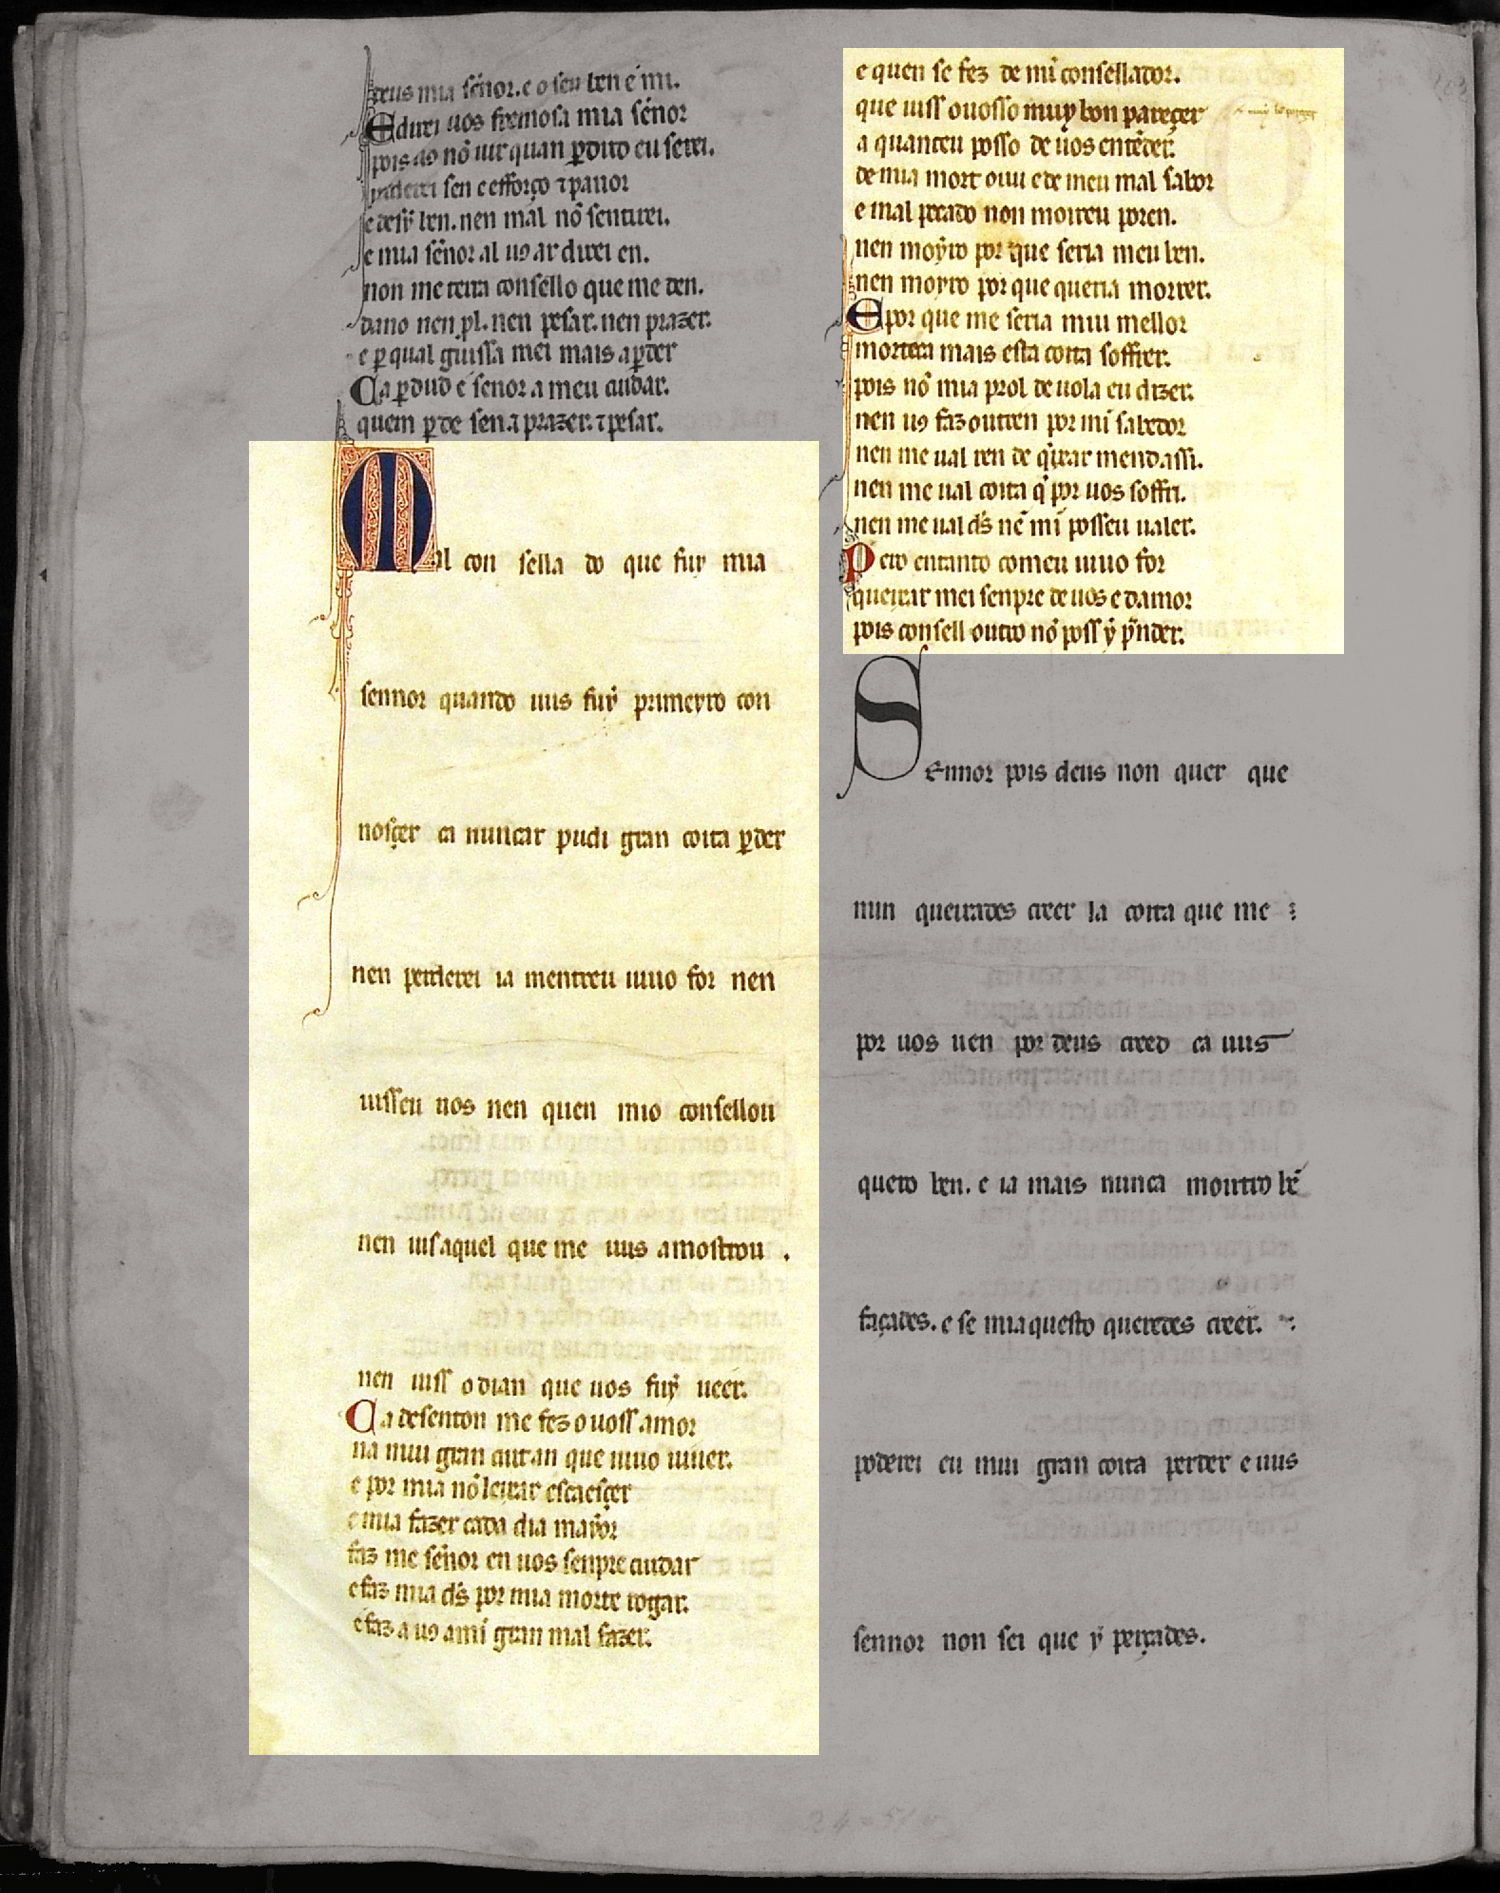 deus mia sẽnor. e o seu ben e mi.
Edirei uos fremosa mia sẽnor
pois uꝯ nõ uir quan ꝑdud eu serei.
perderei sen e efforço ⁊ pauor
e desỹ ben. nen mal nõ sentirei.
e mia sẽnor al uꝯ ar direi en.
non me terra consello que me den.
dano nen pl. nen pesar. nen prazer.
e ꝑ qual guissa mei mais a ꝑder
Ca ꝑdud e senor a meu cuidar.
quem ꝑde sen. ⁊ prazer. ⁊ pesar.
Mal con sella do que fuy mia
sennor quando uus fuỹ primeyro con
nosçer ca nuncar pudi gran coita ꝑder
nen perderei ia mentreu uiuo for nen
uisseu uos nen quen mio consellou
nen uisaquel que me uus amostrou .
nen uiss o dian que uos fuỹ ueer.
Ca desenton me fez o uoss amor
na mui gran cuit an que uiuo uiuer.
e por mia nõ leixar escaesçer
e mia fazer cada dia mayor
faz me sẽnor en uos senpre cuidar
e faz mia d̃s por mia morte rogar.
e faz a uꝯ a mĩ gran mal fazer.
e quen se fez de mĩ consellador.
que uiss ouosso muy bon pareçer
a quanteu posso de uos entẽder.
de mia mort ouu e de meu mal sabor
e mal pecado non moireu poren.
nen moỹro por que seria meu ben.
nen moyro por que queria morrer.
E por que me seria mui mellor
morte ca mais esta coita soffrer.
pois nõ mia prol de uola eu dizer.
nen uꝯ faz outren por mĩ sabedor
nen me ual ren de q̃ixar mend. assi.
nen me ual coita q̃ por uos soffri.
nen me ual d̃s nẽ mĩ posseu ualer.
Pero entanto comeu uiuo for
queixar mei senpre de uos e damor
pois consell outro nõ poss ỹ p̃nder.
Sennor pois deus non quer que
min queirades creer la coita que me
por uos uen por deus creed ca uus
quero ben. e ia mais nunca moirro bẽ
façades. e se mia questo queredes creer.
poderei eu mui gran coita perder e uus
sennor non sei que ỹ perçades.